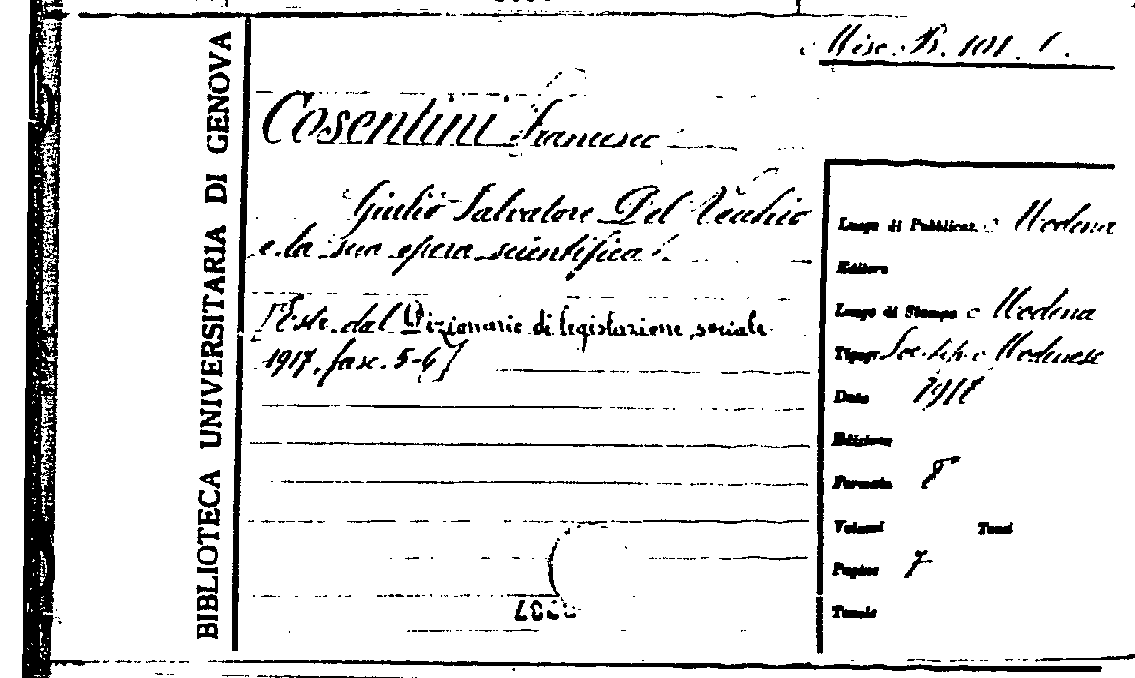 Misc. B. 101. 1.
BIBLIOTECA UNIVERSITARIA DI GENOVA
Cosentini Francesco
Giulio Salvatore Del Vecchio
e la sua opera scientifica.
[Estr. dal Dizionario di legislazione sociale
1917, fasc. 5-6]
Luogo di Pubblicaz. Modena
Editore
Luogo di Stampa Modena
Tipogr. Soc. tip. Modenese
Data
Edizione
Formato 8°
Volumi Tomi
Pagine 7
Tavole